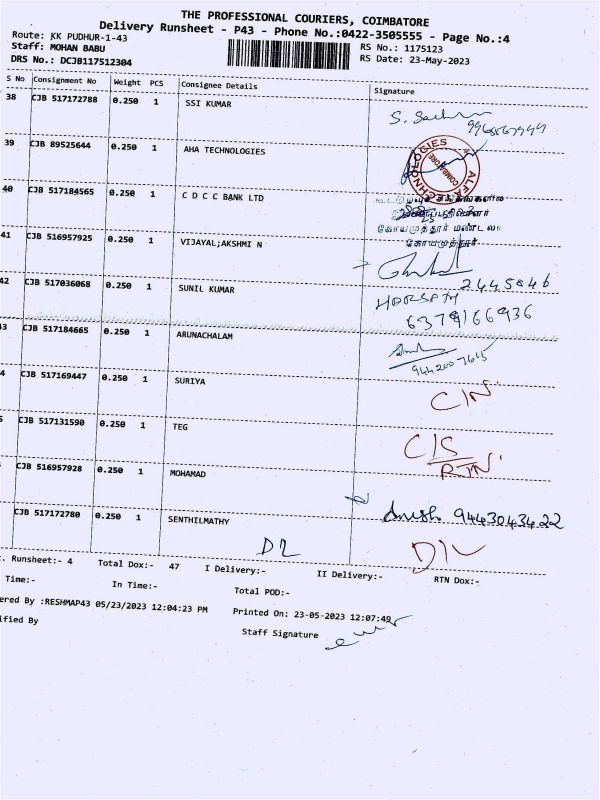 THE PROFESSIONAL COURIERS, COIMBATORE
Delivery Runsheet - P43 - Phone No.:0422-3505555 - Page No.:4
Route: KK PUDHUR-1-43
RS No.: 1175123
Staff: MOHAN BABU
RS Date: 23-May-2023
DRS No.: DCJB117512304
S No Consignment No Weight PCS Consignee Details Signature
38 CJB 517172788 0.250 1 SSI KUMAR
39 CJB 89525644 0.250 1 AHA TECHNOLOGIES
COIMBATORE
40 CJB 517184565 0.250 1 C D C C BANK LTD
கோயமுத்தூர் மண்டல
கோயமுத்தூர்
41 CJB 516957925 0.250 1 VIJAYAL;AKSHMI N
2445846
42 CJB 517036068 0.250 1 SUNIL KUMAR
6379166936
3 CJB 517184665 0.250 1 ARUNACHALAM
4 CJB 517169447 0.250 1 SURIYA
C/N
5 CJB 517131590 0.250 1 TEG
C/S
RTN
CJB 516957928 0.250 1 MOHAMAD
9443043422
CJB 517172780 0.250 1 SENTHILMATHY
DL
D/L
. Runsheet:- 4 Total Dox:- 47 I Delivery:- II Delivery:- RTN Dox:-
Time:- In Time:- Total POD:-
ered By :RESHMAP43 05/23/2023 12:04:23 PM Printed On: 23-05-2023 12:07:49
ified By Staff Signature